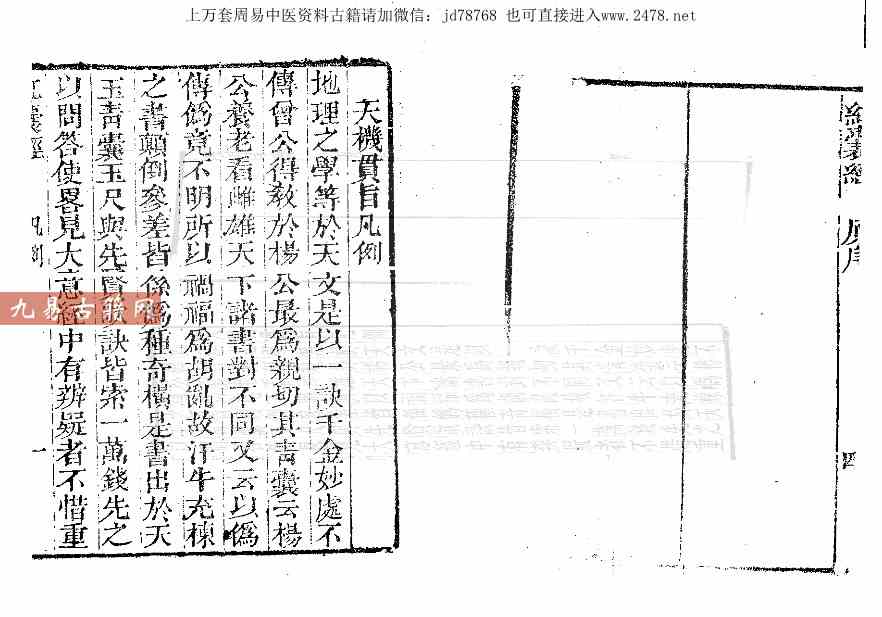 上万套周易中医资料古籍请加微信：jd78768 也可直接进入www.2478.net
四
天機貫旨凡例
地理之學等於天文是以一訣千金妙處不
傳曾公得教於楊公最爲親切其靑囊云楊
公養老看雌雄天下諸書對不同又云以僞
傳僞竟不明所以禍福爲胡亂故汗牛充棟
之書顛倒參差皆係爲種奇橫是書出於天
玉靑囊玉尺與先賢訣皆索一萬錢先之
以問答使畧見大意經中有辨疑者不惜重
囊經 凡例 一
九易古籍网